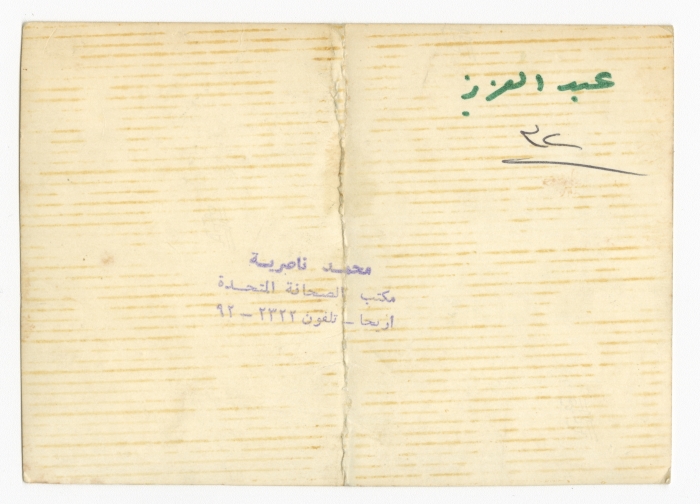 عبد العزيز
محمد ناصرية
مكتب الصحافة المتحدة
اريحا - تلفون ٢٣٢٢ - ٩٢